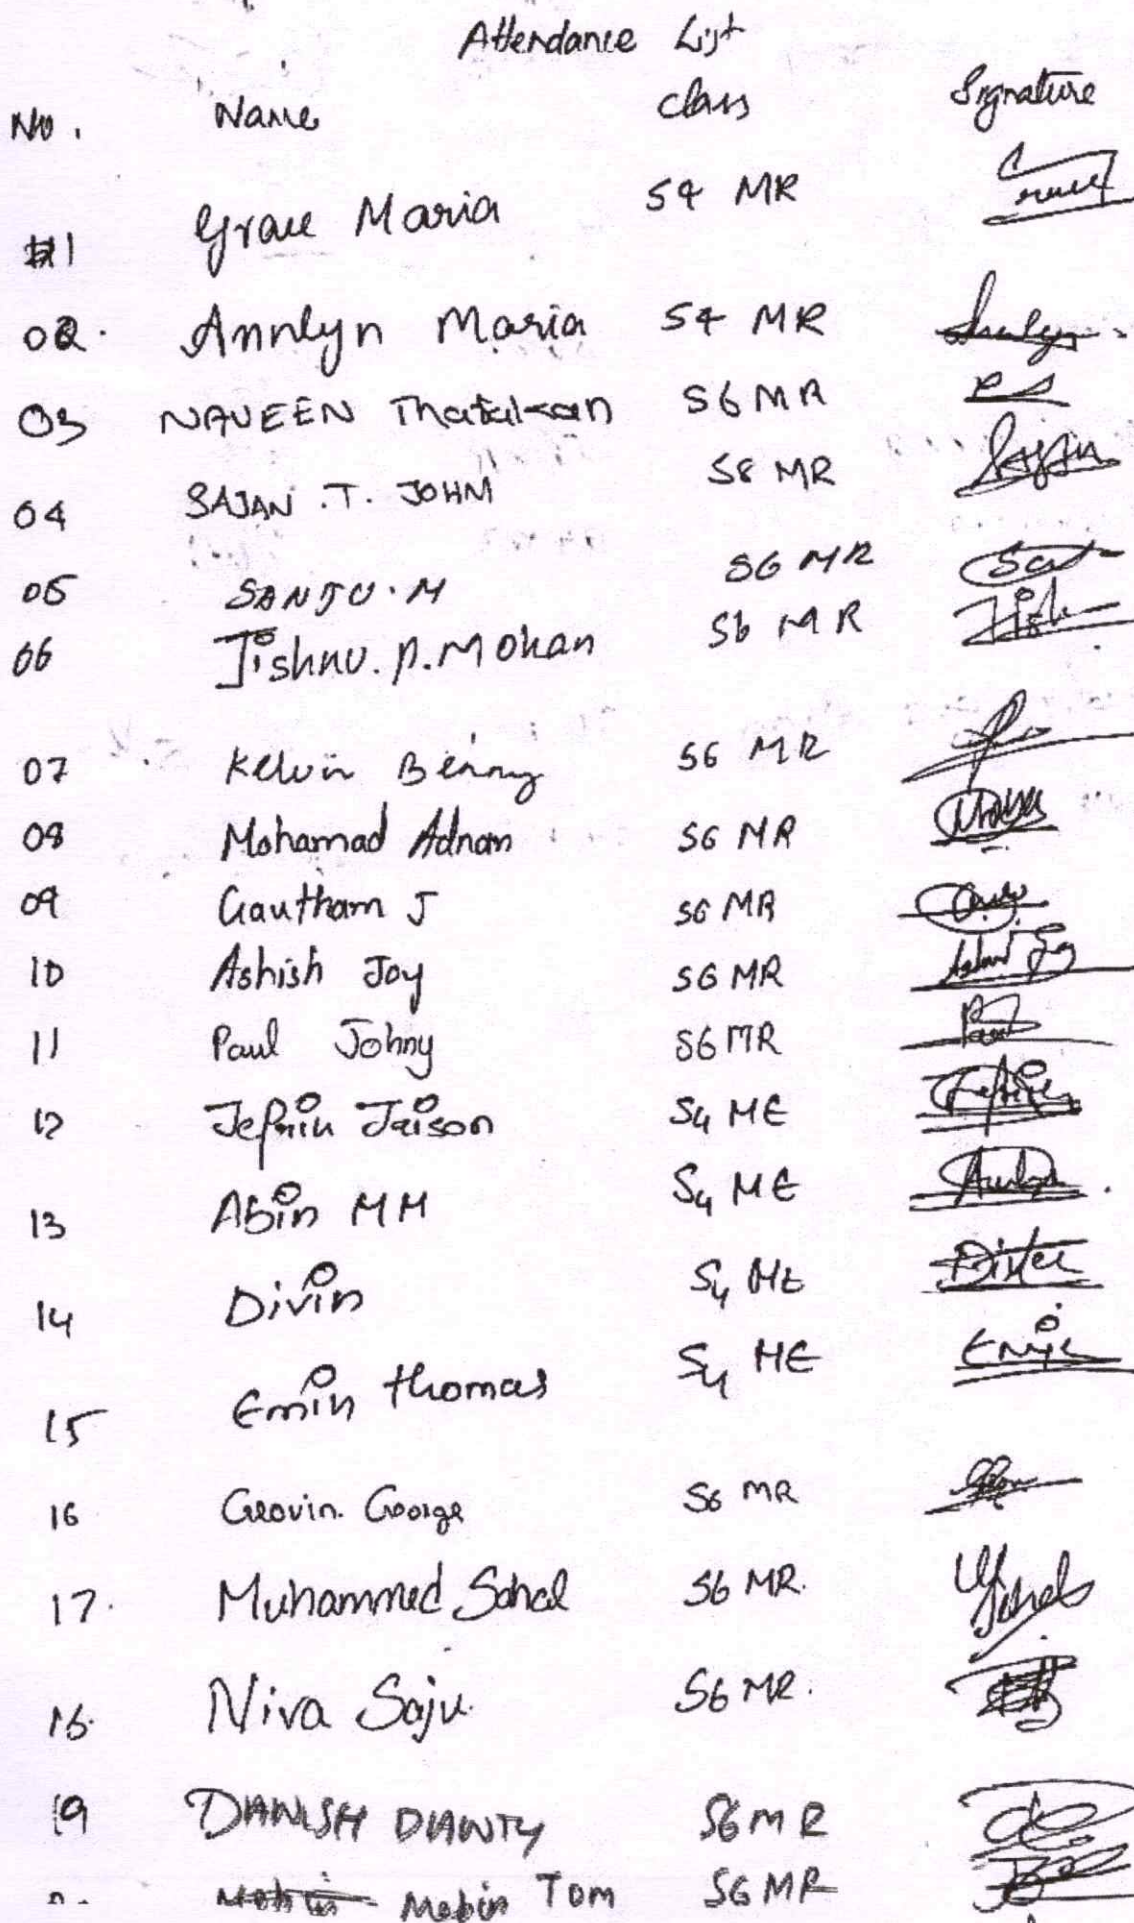 Attendance List
No. Name Class Signature
1 Grace Maria S4 MR
02. Annlyn Maria S4 MR
03 NAVEEN S6 MR
04 SAJAN .T. JOHN S8 MR
05 SANJU.M S6 MR
06 Jishnu.P.Mohan S6 MR
07 Kelvin Benny S6 MR
08 Mohamad Adnan S6 MR
09 Gautham J S6 MR
10 Ashish Joy S6 MR
11 Paul Johny S6 MR Paul
12 Jefrin Jaison S4 ME
13 Abin MM S4 ME
14 Divin S4 ME
15 Emin thomas S4 ME
16 Geovin George S6 MR
17. Muhammed Sahal S6 MR.
18. Niva Saju S6 MR.
19 DANISH DAVNTY S6 MR
Mobin Tom S6 MR